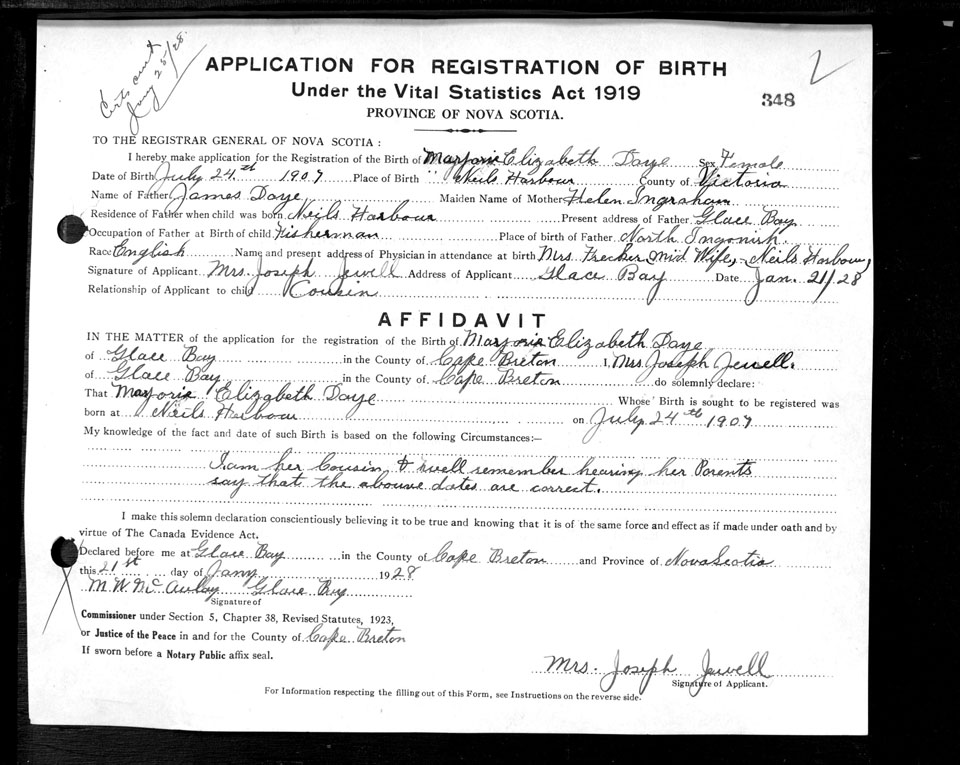 Certs out
Jany 25/28.
2
APPLICATION FOR REGISTRATION OF BIRTH
Under the Vital Statistics Act 1919
348
PROVINCE OF NOVA SCOTIA.
TO THE REGISTRAR GENERAL OF NOVA SCOTIA:
I hereby make application for the Registration of the Birth of Marjorie Elizabeth Daye Sex Female
Date of Birth July 24th 1907 Place of Birth " Neils Harbour County of Victoria
Name of Father James Daye Maiden Name of Mother Helen Ingraham
Residence of Father when child was born Neils Harbour Present address of Father Glace Bay
Occupation of Father at Birth of child Fisherman Place of birth of Father North Ingonish.
Race English Name and present address of Physician in attendance at birth Mrs. Frecker Mid Wife, Neils Harbour
Signature of Applicant Mrs. Joseph Jewell Address of Applicant Glace Bay Date Jan. 21/28
Relationship of Applicant to child Cousin
AFFIDAVIT
IN THE MATTER of the application for the registration of the Birth of Marjorie Elizabeth Daye
of Glace Bay in the County of Cape Breton I Mrs Joseph Jewell.
of Glace Bay in the County of Cape Breton do solemnly declare:
That Marjorie Elizabeth Daye Whose Birth is sought to be registered was
born at Neils Harbour on July 24th 1907
My knowledge of the fact and date of such Birth is based on the following Circumstances:—
I am her Cousin, & well remember hearing her Parents
say that the abouve dates are correct.
I make this solemn declaration conscientiously believing it to be true and knowing that it is of the same force and effect as if made under oath and by
virtue of The Canada Evidence Act.
Declared before me at Glace Bay in the County of Cape Breton and Province of Nova Scotia
this 21st day of Jany 1928
M. W. McAulay Glace Bay
Signature of
Commissioner under Section 5, Chapter 38, Revised Statutes, 1923,
or Justice of the Peace in and for the County of Cape Breton
If sworn before a Notary Public affix seal.
Mrs. Joseph Jewell
Signature of Applicant.
For Information respecting the filling out of this Form, see Instructions on the reverse side.